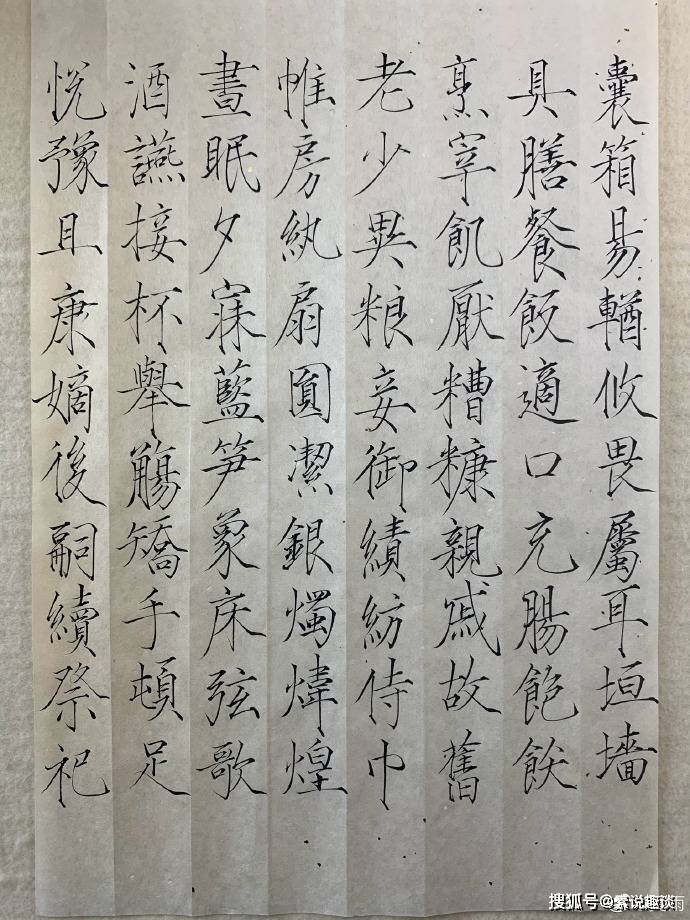 囊箱易輶攸畏屬耳垣墻
具膳餐飯適口充腸飽飫
烹宰飢厭糟糠親戚故舊
老少異粮妾御績紡侍巾
帷房紈扇圓潔銀燭煒煌
晝眠夕寐藍笋象床弦歌
酒讌接杯舉觴矯手頓足
悅豫且康嫡後嗣續祭祀
搜狐号@紫说趣谈